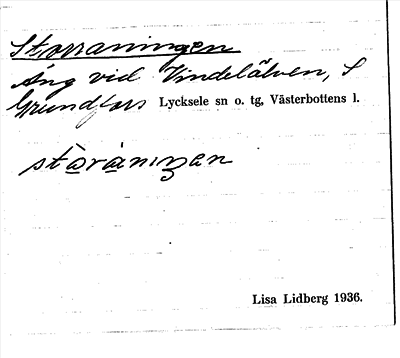 Storraningen
Äng vid Vindelälven, S
Grundfors Lycksele sn o. tg, Västerbottens l.
stòràniŋen
Lisa Lidberg 1936.